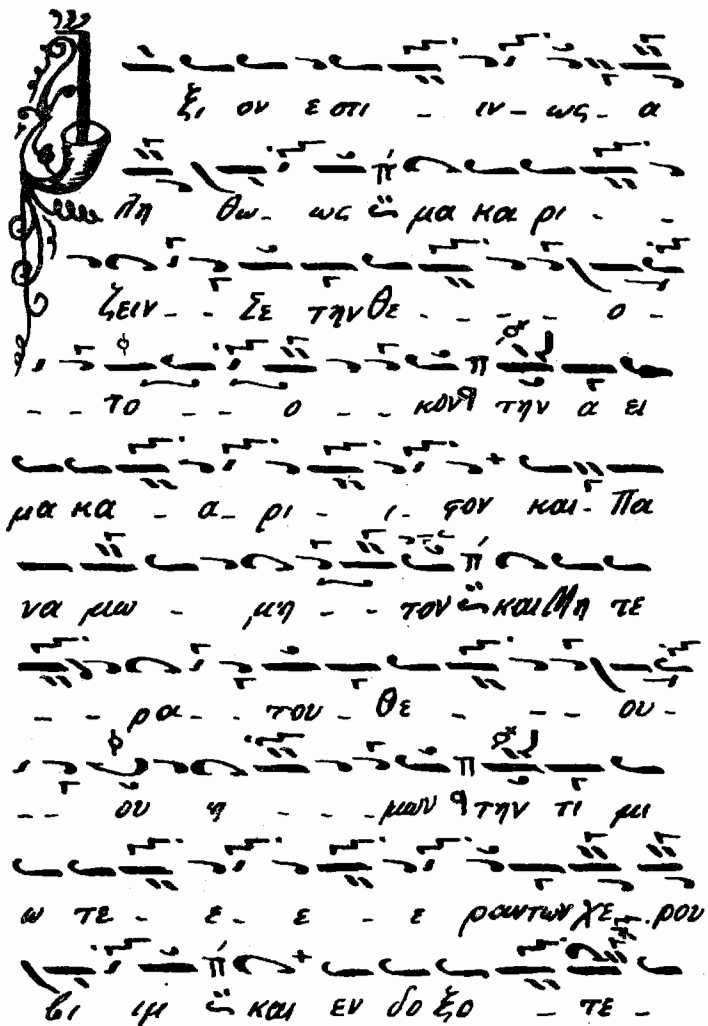 ξι ον ε στι - ιν - ως - α
λη θω - ως μα κα ρι - -
ζειν - - Σε την Θε - - - - ο -
- - το - - ο - - κον την α ει
μα κα - α - ρι - ι - στον και - Πα
να μω - μη - - τον και Μη τε
- - - ρα - του - Θε - - - - ου -
- - ου η - - - μων την τι μι
ω τε - ε - ε - ε ραν των χε - ρου
βι ιμ και εν δο ξο - τε -